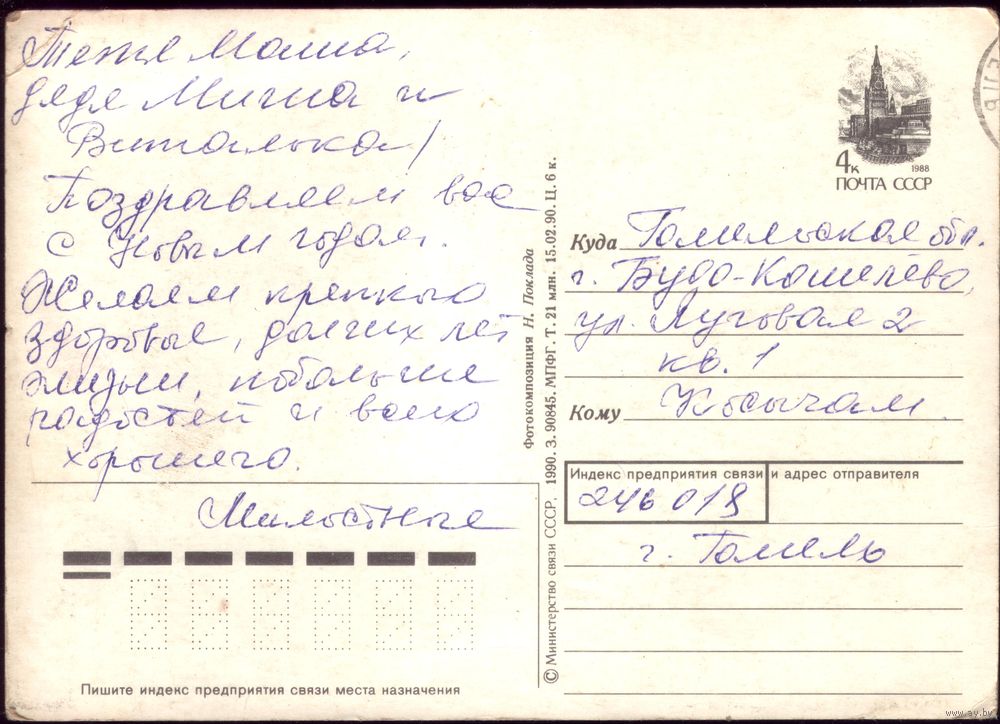 Тетя Маша,
дядя Миша и
Виталька!
Поздравляем вас
с Новым годом.
Желаем крепкого
здоровья, долгих лет
жизни, побольше
радостей и всего
хорошего.
Милостные
4к
1988
ПОЧТА СССР
Куда Гомельская обл.
г. Буда-Кошелёво,
ул. Луговая 2
кв. 1
Кому Косычам.
Индекс предприятия связи и адрес отправителя
246018
г. Гомель
Пишите индекс предприятия связи места назначения
© Министерство связи СССР. 1990. З. 90845. МПФГ. Т. 21 млн. 15.02.90. Ц. 6 к.
Фотокомпозиция Н. Поклада
www.ay.by